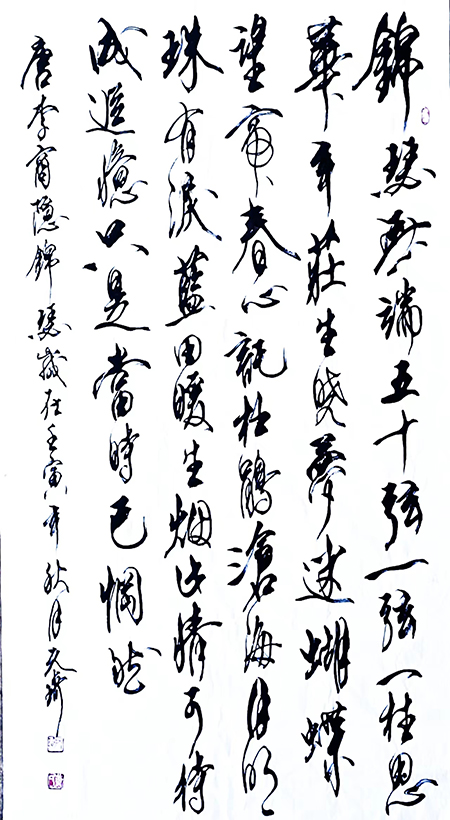 錦瑟無端五十弦一弦一柱思
華年莊生曉夢迷蝴蝶
望帝春心託杜鵑滄海月明
珠有淚藍田暖生烟此情可待
成追憶只是當時已惘然
唐李商隱錦瑟歲在壬寅年秋月